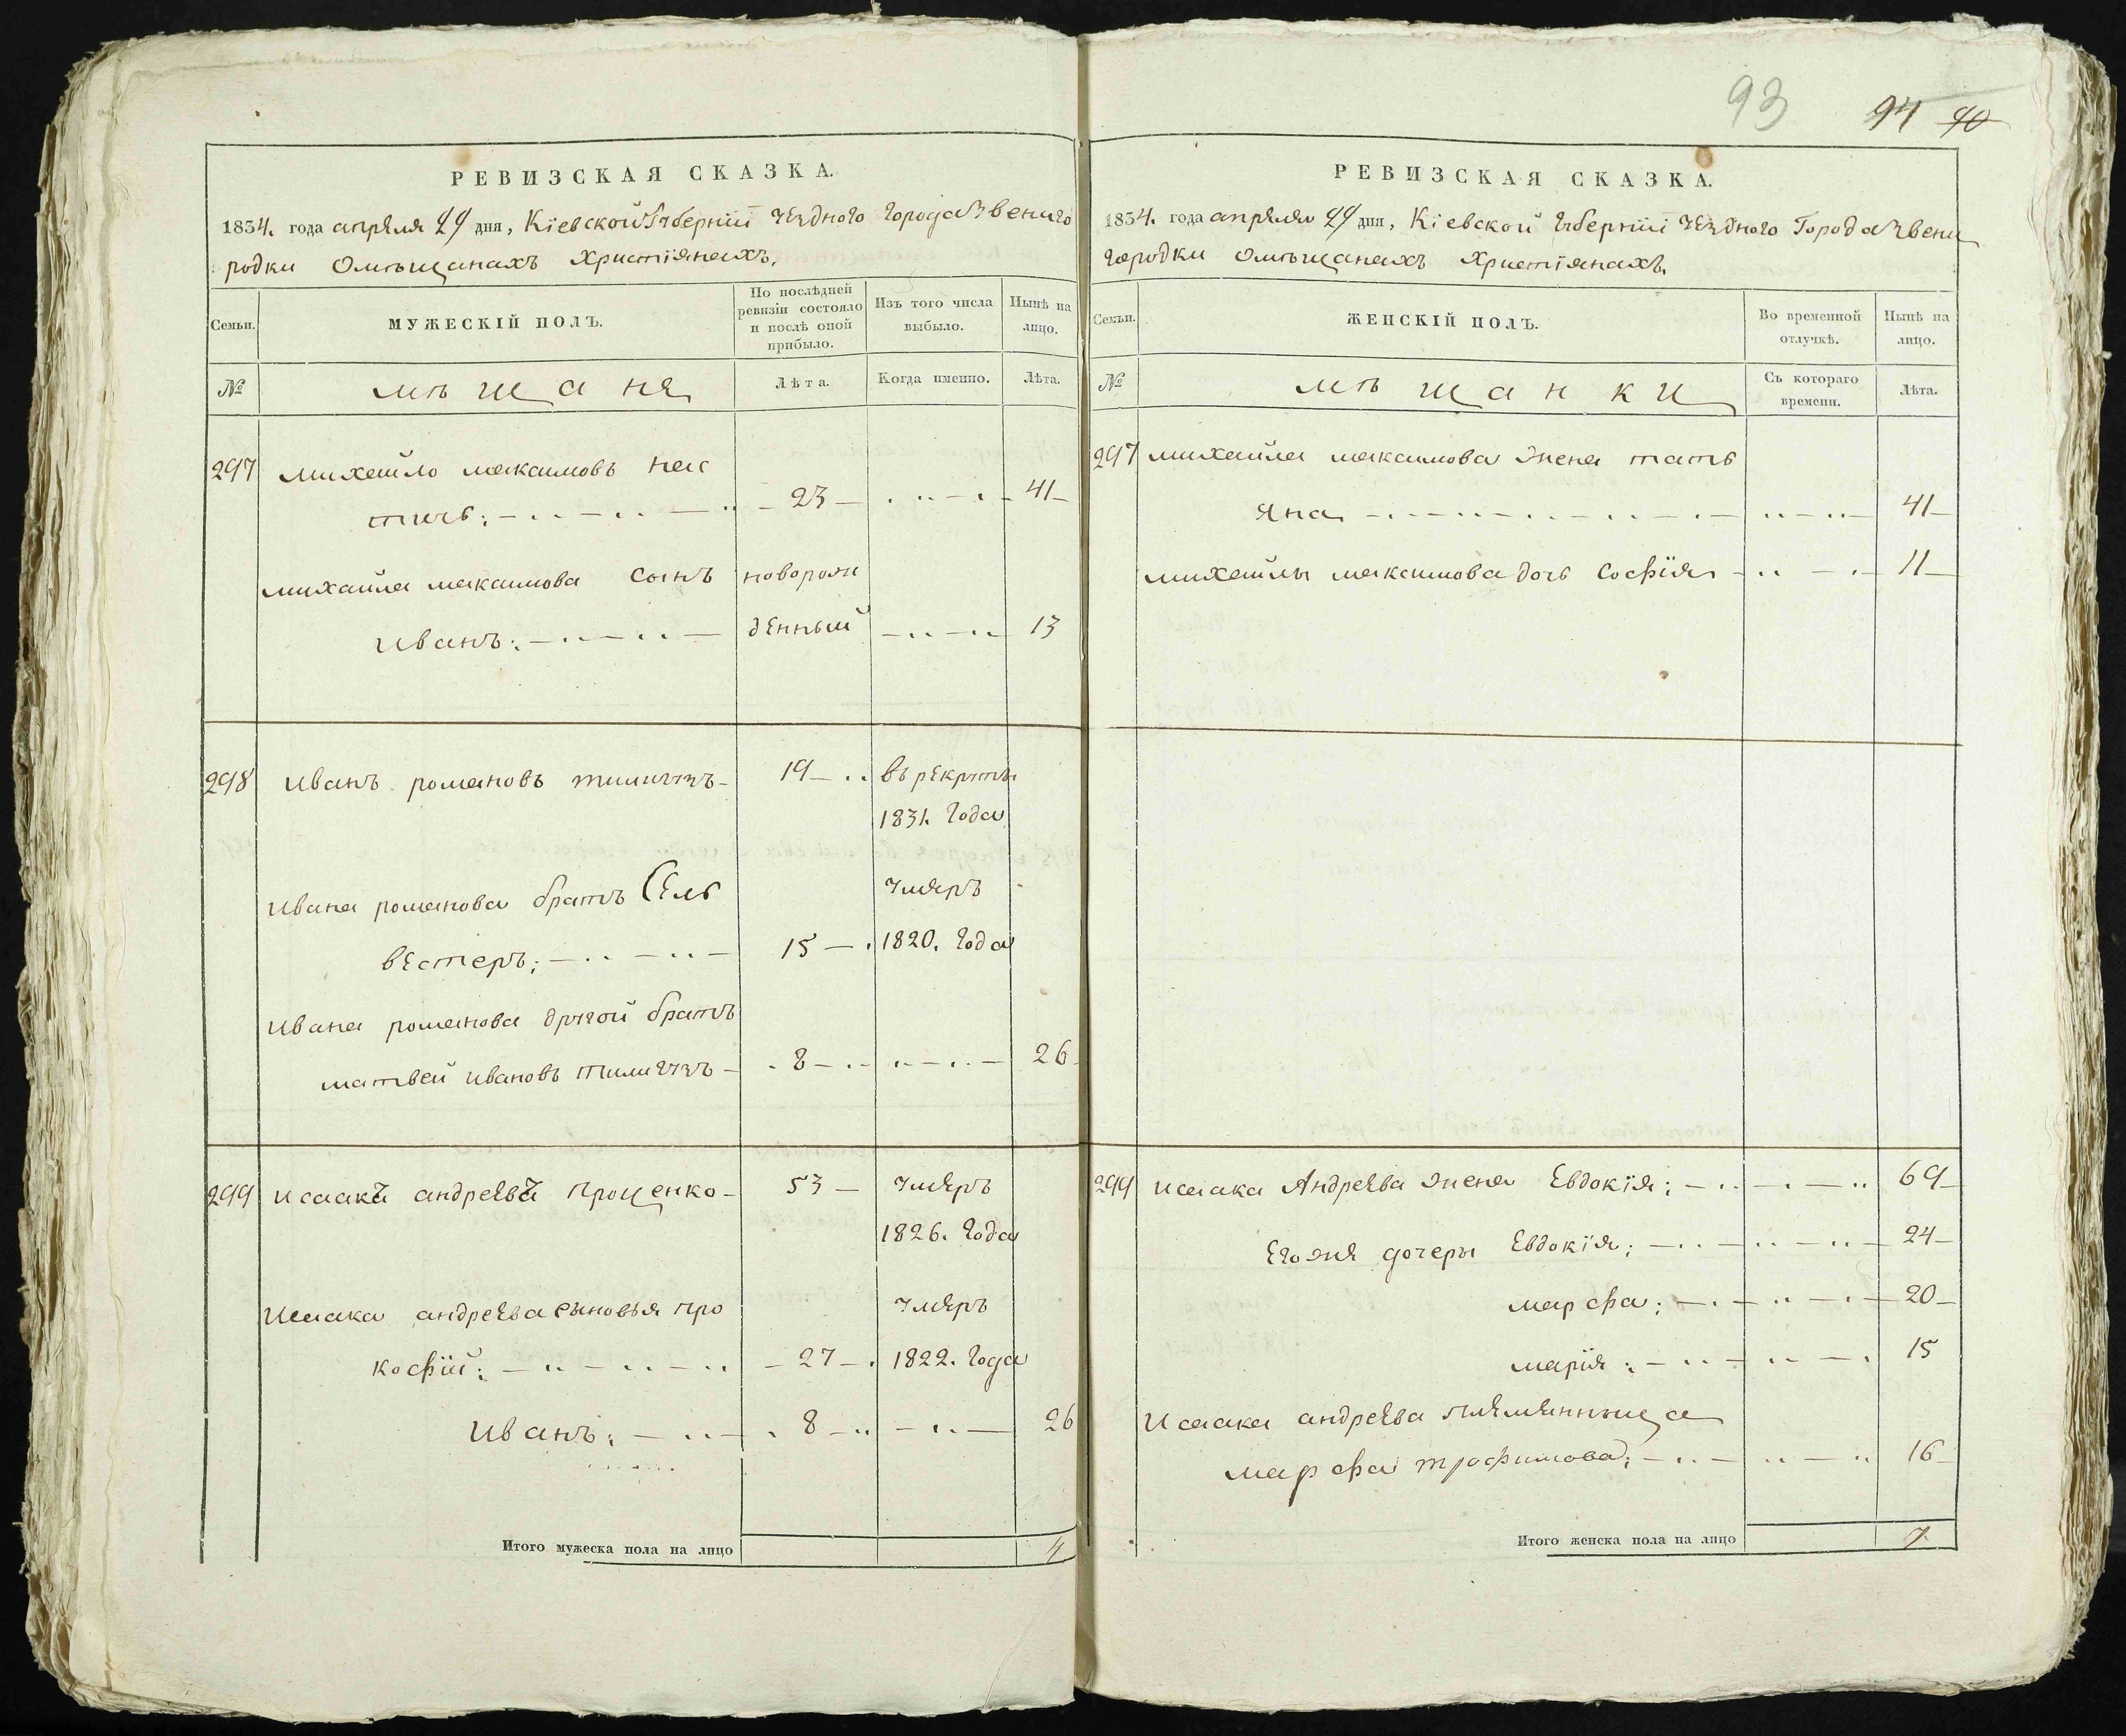 93 94 90
РЕВИЗСКАЯ СКАЗКА.
1834. года апреля 29 дня, Кіевской Губерніи уезднаго города Звениго
родки Омѣщанахъ Христіянахъ.
Семьи.
МУЖЕСКІЙ ПОЛЪ.
По послѣдней
ревизіи состояло
и послѣ оной
прибыло.
Изъ того числа
выбыло.
Нынѣ на
лицо.
№
мѣщаня
Лѣта.
Когда именно.
Лѣта.
297 михайло максимовъ
23 41
михайла максимова сынъ новорож
Иванъ: денный 13
298 Иванъ романовъ 19 въ рекруты
1831. года
Ивана романова братъ Селв умеръ
вестеръ; 15 1820. года
Ивана романова другой братъ
матвей Ивановъ 8 26
299 Исаакй андреевй Проценко 53 умеръ
1826. года
Исаака андреева сыновья про умеръ
кофій: 27 1822. года
Иванъ: 8 26
Итого мужеска пола на лицо 4
РЕВИЗСКАЯ СКАЗКА.
1834. года апреля 29 дня, Кіевской Губерніи уезднаго Города Звени
городки Омѣщанахъ Христіянахъ.
Семьи.
ЖЕНСКІЙ ПОЛЪ.
Во временной
отлучкѣ.
Нынѣ на
лицо.
№
мѣщанки
Съ котораго
времени.
Лѣта.
297 михайла максимова жена тать
яна 41
михайлы максимова дочь Софїя 11
299 Исаака Андреева жена Евдокїя; 69
Егоже дочеры Евдокїя; 24
марфа; 20
марїя; 15
Исаака андреева племянныца
марфа трофимова; 16
Итого женска пола на лицо 7